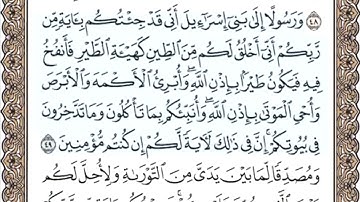 ٤٨ وَرَسُولًا إِلَىٰ بَنِىٓ إِسْرَٰٓءِيلَ أَنِّى قَدْ جِئْتُكُم بِـَٔايَةٍ مِّن
رَّبِّكُمْ أَنِّىٓ أَخْلُقُ لَكُم مِّنَ ٱلطِّينِ كَهَيْـَٔةِ ٱلطَّيْرِ فَأَنفُخُ
فِيهِ فَيَكُونُ طَيْرًۢا بِإِذْنِ ٱللَّهِۖ وَأُبْرِئُ ٱلْأَكْمَهَ وَٱلْأَبْرَصَ
وَأُحْىِ ٱلْمَوْتَىٰ بِإِذْنِ ٱللَّهِۖ وَأُنَبِّئُكُم بِمَا تَأْكُلُونَ وَمَا تَدَّخِرُونَ
فِى بُيُوتِكُمْۚ إِنَّ فِى ذَٰلِكَ لَـَٔايَةً لَّكُمْ إِن كُنتُم مُّؤْمِنِينَ ٤٩
وَمُصَدِّقًا لِّمَا بَيْنَ يَدَىَّ مِنَ ٱلتَّوْرَىٰةِ وَلِأُحِلَّ لَكُم